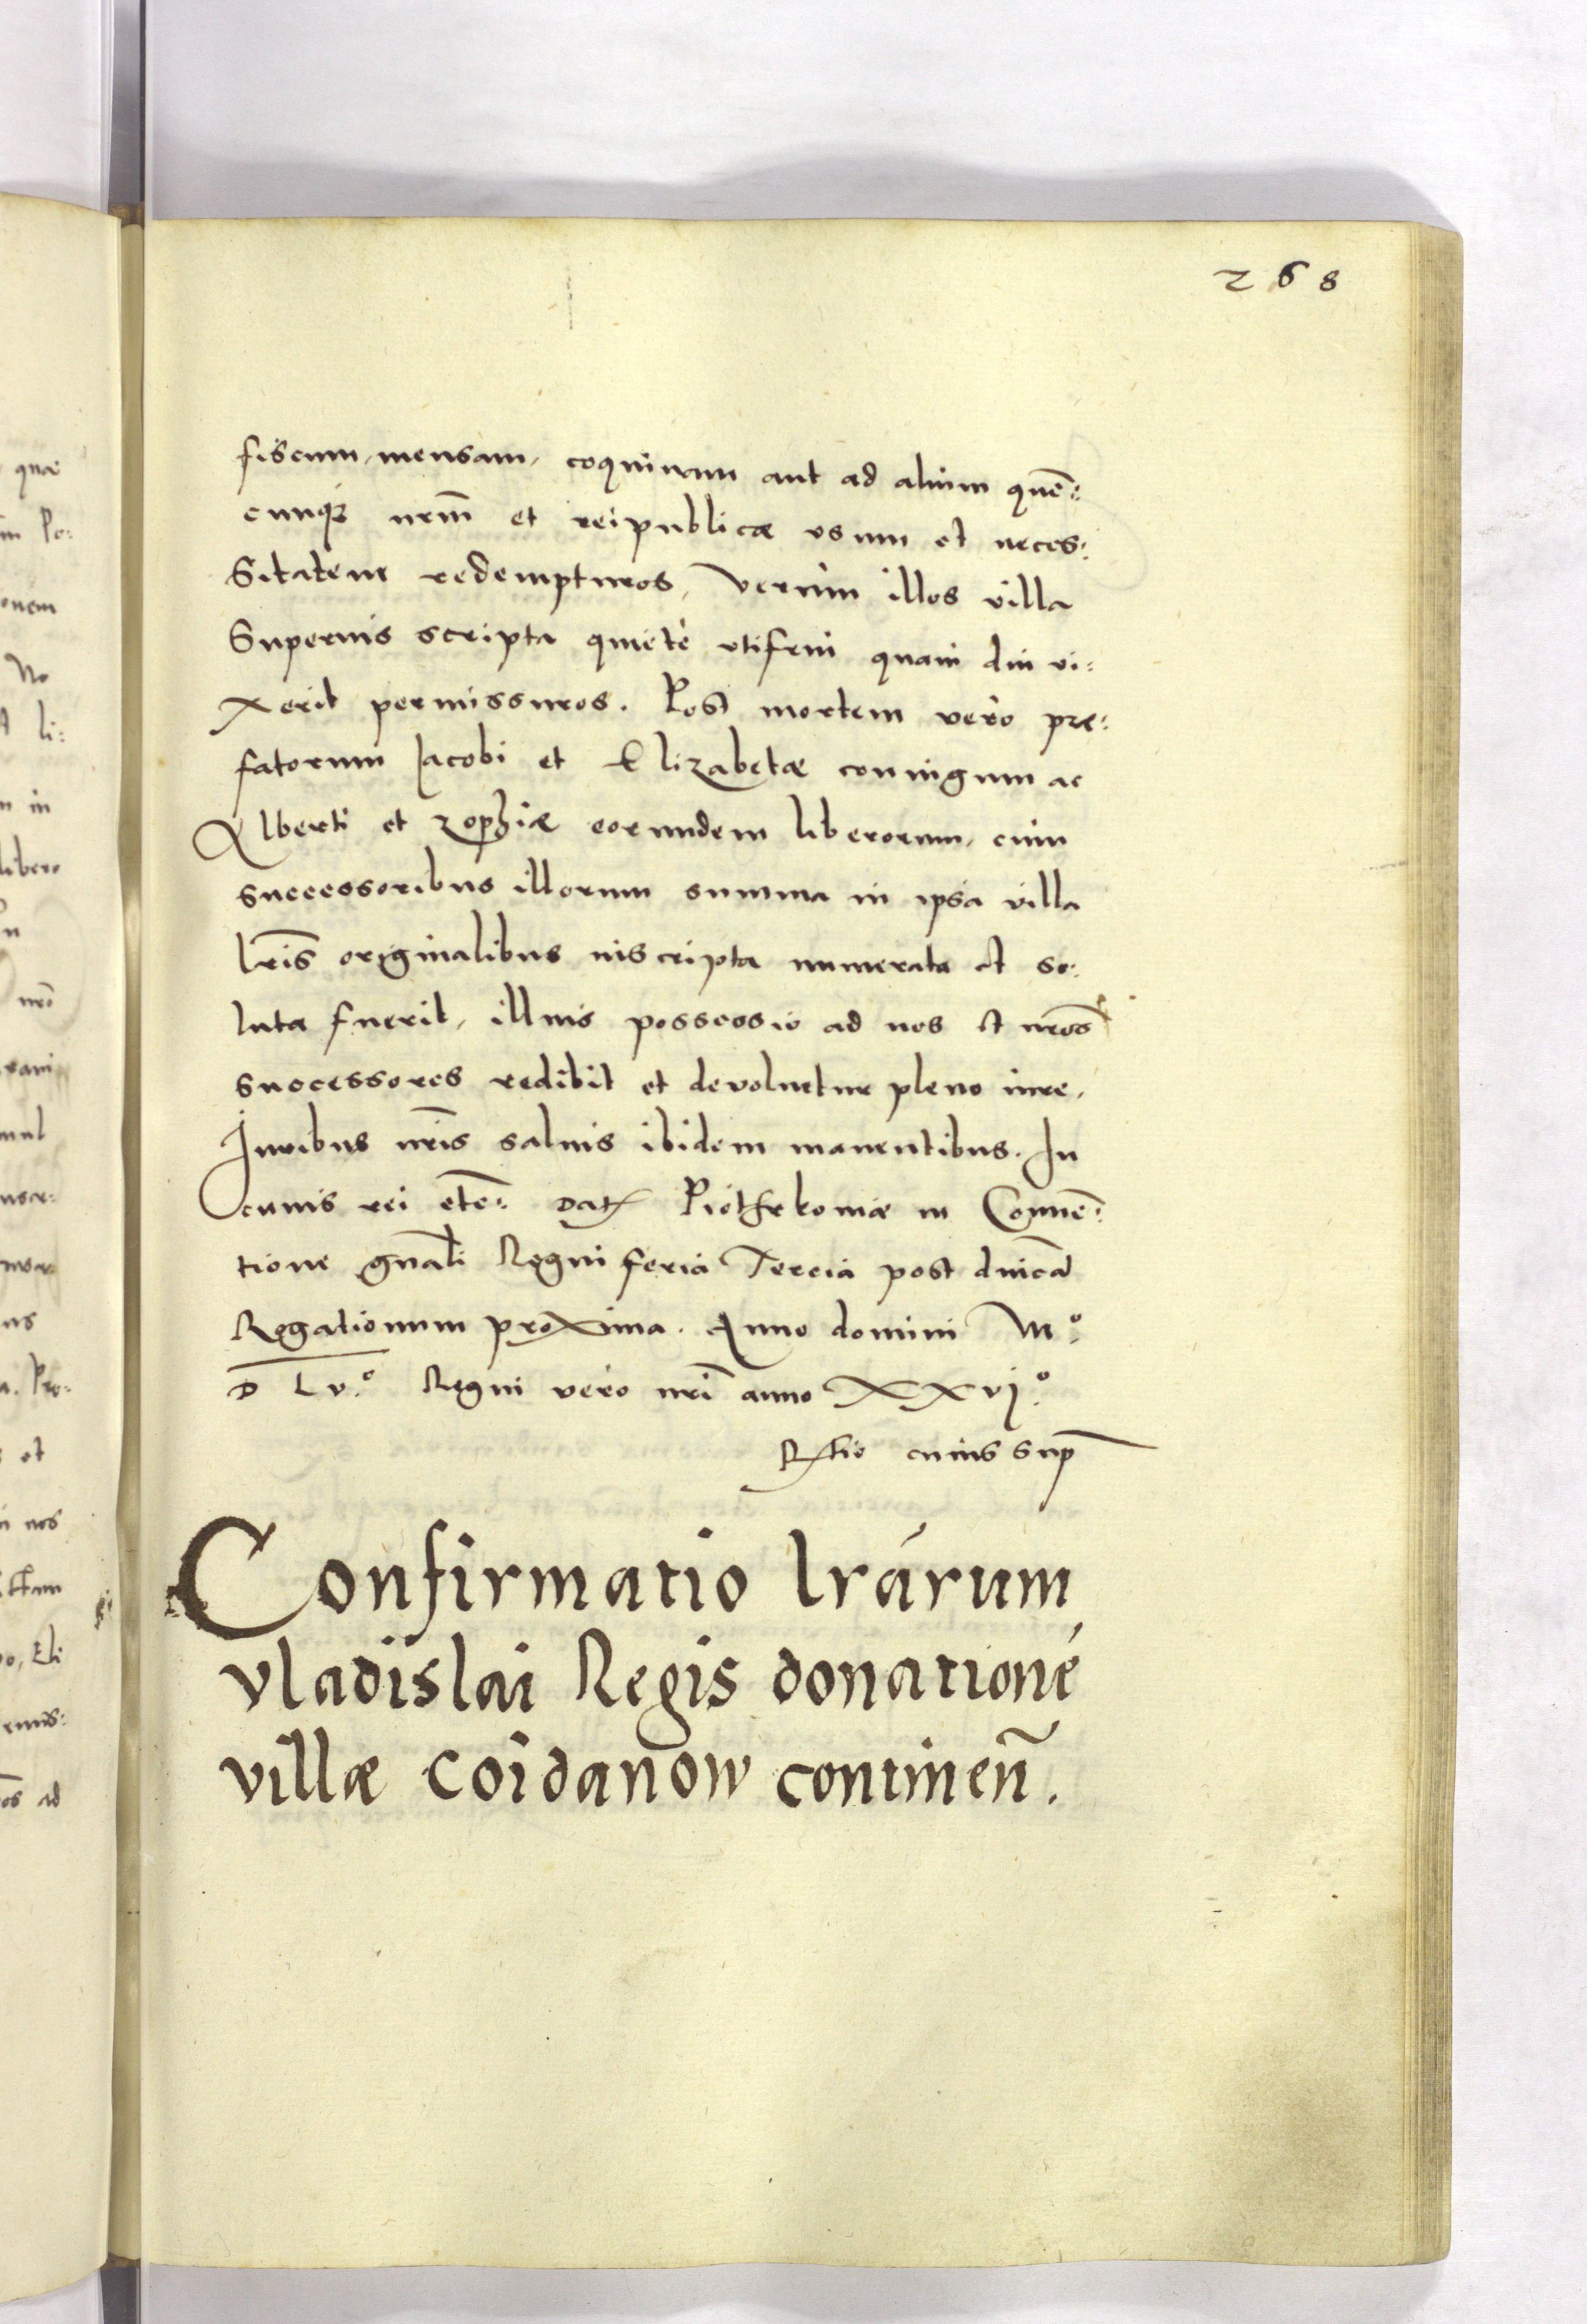 268
fiscum, mensam, coquinam aut ad alium quē:
cunqz nrm̄ et reipublicæ usum et neces:
Sitatem redempturos, verùm illos villa
Superius scripta quietè utifrui quam diu vi:
xerit permissuros. Post mortem verò præ:
fatorum Jacobi et Elizabetæ coniugum ac
Alberti et Zophiæ eorundem liberorum, cùm
successoribus illorum summa in ipsa villa
lrīs originalibus inscripta numerata et so:
luta fuerit, illius possessio ad nos et nrōs
successores redibit et devoluetur pleno iure,
Iuribus nrīs saluis ibidem manentibus. In
cuius rei etc̄: Dat Piothrkouiæ in Conuē:
tione gnāli Regni feria Tercia post dnicā
Rogationum proxima. Anno domini M.º
D L v.º Regni verò nrī anno XXvj.º
Rtio cuius sup̄
Confirmatio lrārum
vladislai Regis donationē
villæ Coidanow continen̄.
quæ
Po:
onem
No
li:
in
libero
nrō
et
nos
Eli
ad